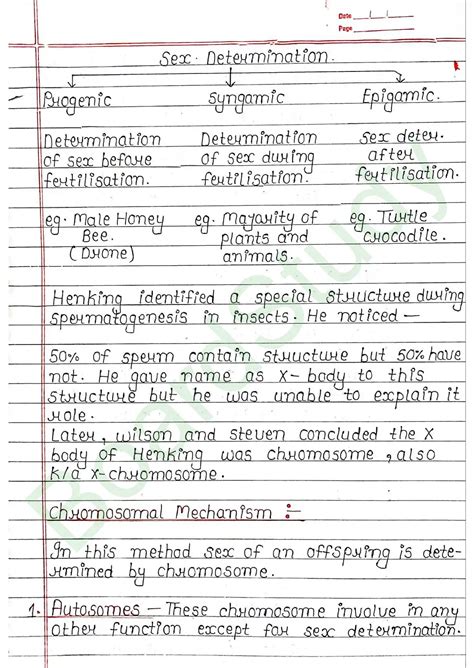 Date
Page
Sex Determination.
Progenic Syngamic Epigamic.
Determination Determination sex deter.
of sex before of sex during after
fertilisation. fertilisation. fertilisation.
eg. Male Honey eg. Mayarity of eg. Turtle
Bee. plants and crocodile.
(Drone) animals.
Henking identified a special structure during
spermatogenesis in insects. He noticed —
50% of sperm contain structure but 50% have
not. He gave name as X-body to this
structure but he was unable to explain it
role.
Later, wilson and steven concluded the X
body of Henking was chromosome, also
k/a x-chromosome.
Chromosomal Mechanism :-
In this method sex of an offspring is dete-
rmined by chromosome.
1. Autosomes — These chromosome involve in any
other function except for sex determination.
BoardStudy